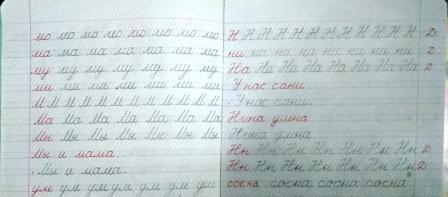 мо мо мо мо мо мо мо мо
ма ма ма ма ма ма ма ма
му му му му му му му му
ми ми ми ми ми ми ми ми
М М М М М М М М М М
Ма Ма Ма Ма Ма Ма Ма
Мы Мы Мы Мы Мы Мы Мы
Мы и мама.
Мы и мама.
ум ум ум ум ум ум ум
Н Н Н Н Н Н Н Н Н Н Н
ни ни ни ни ни ни ни ни
На На На На На На На На
У нас сани.
У нас сани.
Нина умна.
Нина умна.
Нн Нн Нн Нн Нн Нн Нн
Нн Нн Нн Нн Нн Нн Нн
сосна сосна сосна сосна